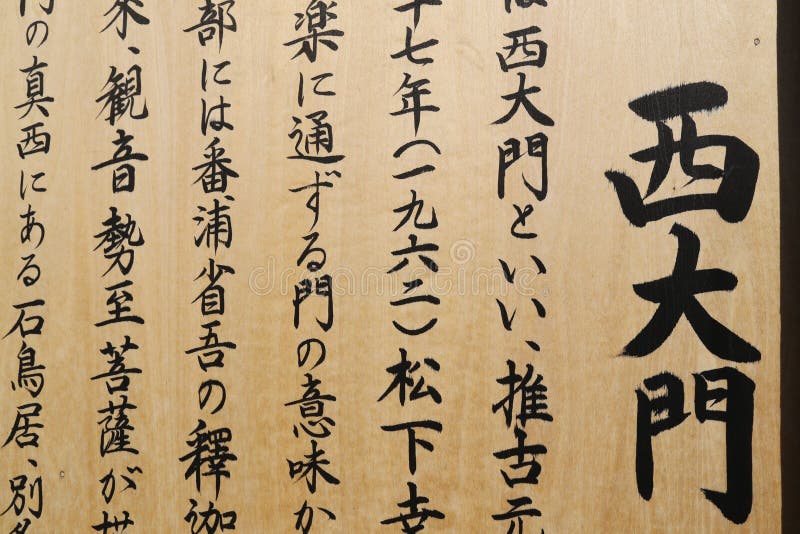 西大門
は西大門といい、推古元
十七年(一九六二)松下幸
楽に通ずる門の意味か
部には番浦省吾の釋迦
来、観音勢至菩薩が
門の真西にある石鳥居、別名
dreamstime